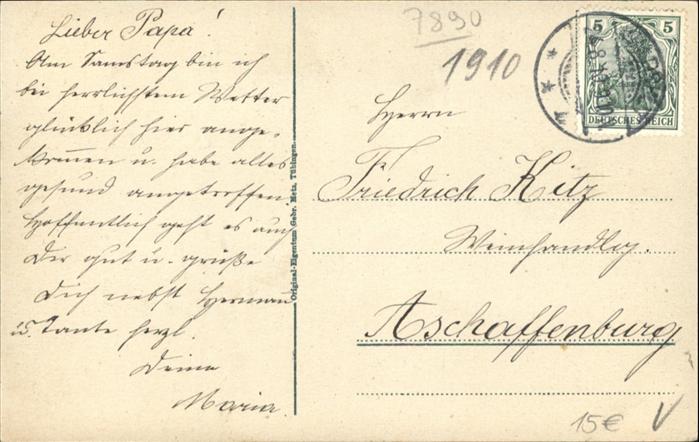 Lieber Papa!
Am Samstag bin ich
bei herrlichstem Wetter
glücklich hier ange-
kommen u. habe alles
gesund angetroffen.
Hoffentlich geht es auch
Dir gut u. grüße
Dich nebst Hermann
u. Tante herzl.
Deine
Maria.
Original-Eigentum Gebr. Metz, Tübingen
7890
1910
5 5
DEUTSCHES REICH
Herrn
Friedrich Kitz
Weinhandlg.
Aschaffenburg
15€